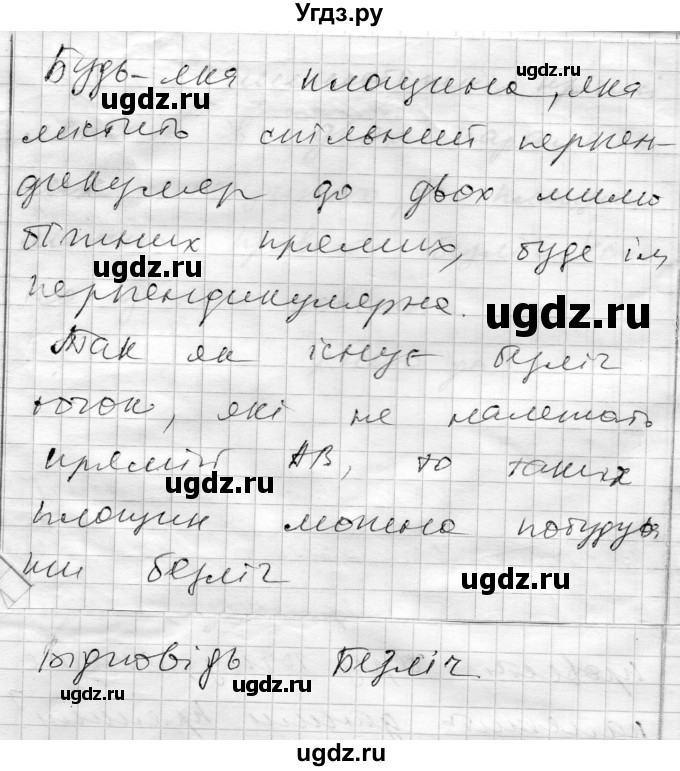 Угдз.ру
Будь-яка площина, яка
ugdz.ru
містить спільний перпен-
дикуляр до двох мимо
біжних прямих, буде їм
ugdz.ru
перпендикулярна.
ugdz.ru
Так як існує безліч
точок, які не належать
прямій АВ, то таких
ugdz.ru
площин можна побудува
ти безліч
ugdz.ru
Відповідь Безліч
ugdz.ru ugdz.ru
ugdz.ru